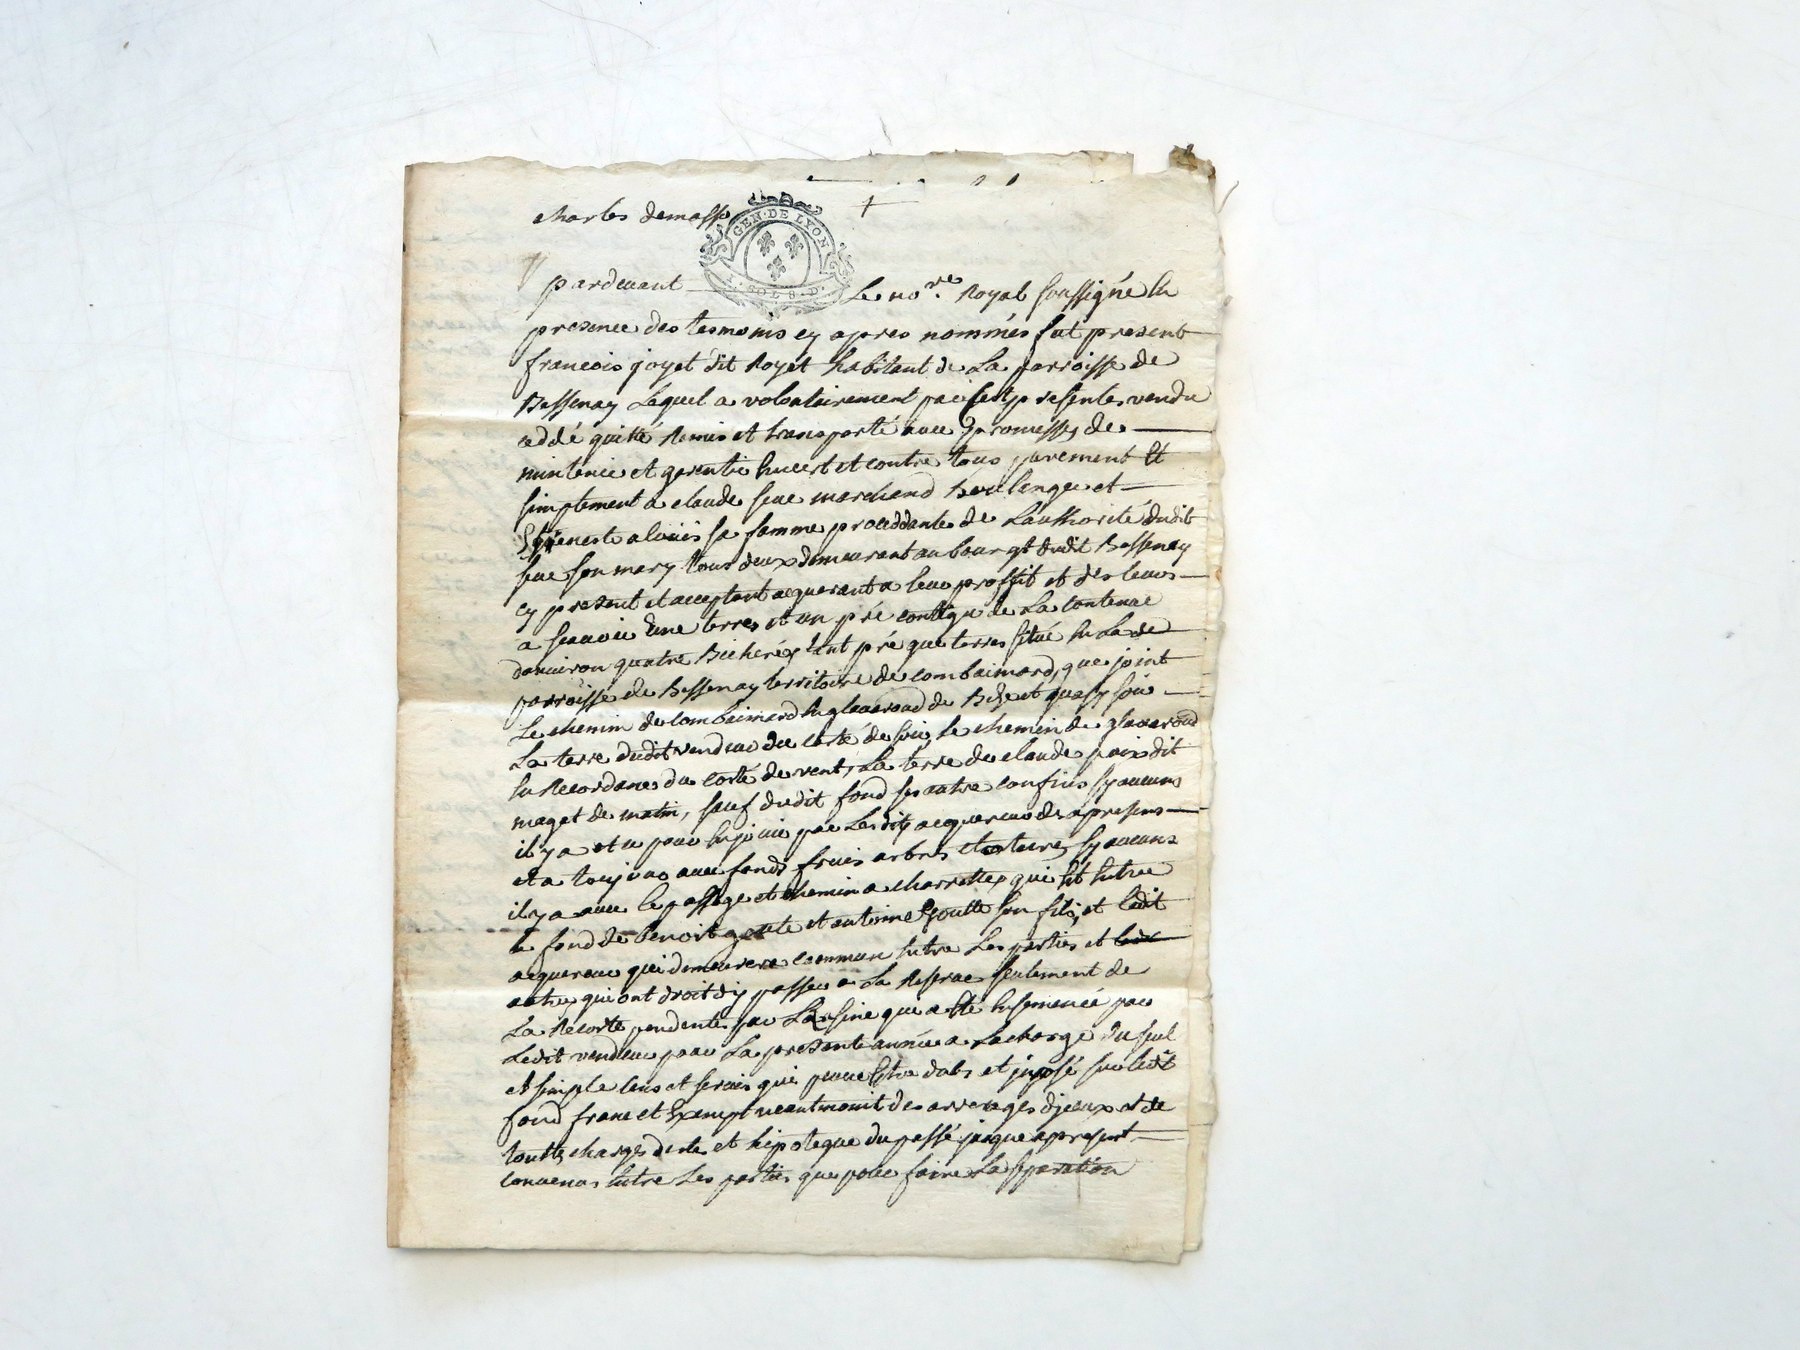 charles demasse
GEN·DE LYON
SOLS·D·
pardevant Le no.re Royal soussigné en
presence des tesmoins cy apres nommés fut present
francois joyet dit Royet habitant de La parroisse de
Bessenay Lequel a volontairement par ses presentes vendu
ceddé quitté Remis et transporté avec promesses de
mintenir et garentir envert et contre tous purement Et
simplement a claude seve marchand Boulanger et
sa femme proceddante de Lauthorité dudit
seve son mary tous deux demeurant au bourgt dudit Bessenay
cy present et acceptant acquerant a leur proffit et des leurs
a scavoir Une terre et un pré contigu de La contenue
denviron quatre Bicherés tant pré que terres situé en La de
parroisse de Bessenay territoire de combaimard, que joint
Le chemin de combaimard en glaverond de Bize et quasy soir
La terre dudit vendeur du costé de soir, le chemin de glaverond
du costé de vent, La terre de claude dit
maget de matin, sauf dudit fond ses autre confins sy aucuns
il y a et pour en jouir par Lesdits acquereurs des apresens
et a toujours avec fonds fruis arbres sy aucuns
il y a avec le passage et chemin a charrettes qui Est Entre
le fond de benoit goutte et antoine Goutte son fils, et ledit
acquereur qui demeurera commun Entre Les parties et
autres qui ont droit dy passer a La Reserve seulement de
La Recorte pendente par Racine qui a Eté Ensemencé par
Ledit vendeur pour La presente année a La charge du seul
et simple cens et servis qui peuve Estre dubs et imposé sur ledit
fond franc et Exempt neantmoint des arrerages diceux et de
toutte charges dette et hipoteque du passé jusque apresent
convenus Entre Les parties que pour faire La separation